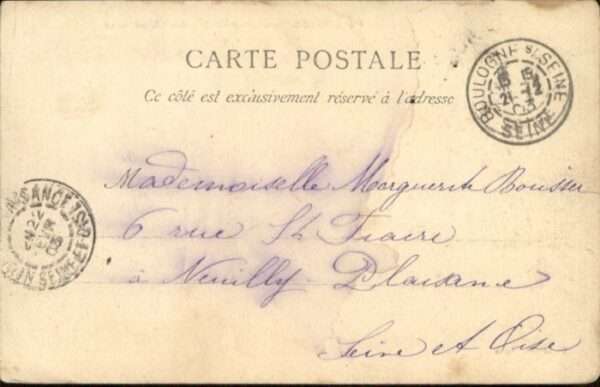 CARTE POSTALE
Ce côté est exclusivement réservé à l'adresse
BOULOGNE S/ SEINE
SEINE
Mademoiselle Marguerite
6 rue St Fiacre
à Neuilly-Plaisance
Seine et Oise